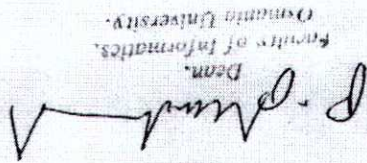 Dean.
Faculty of Informatics,
Osmania University.